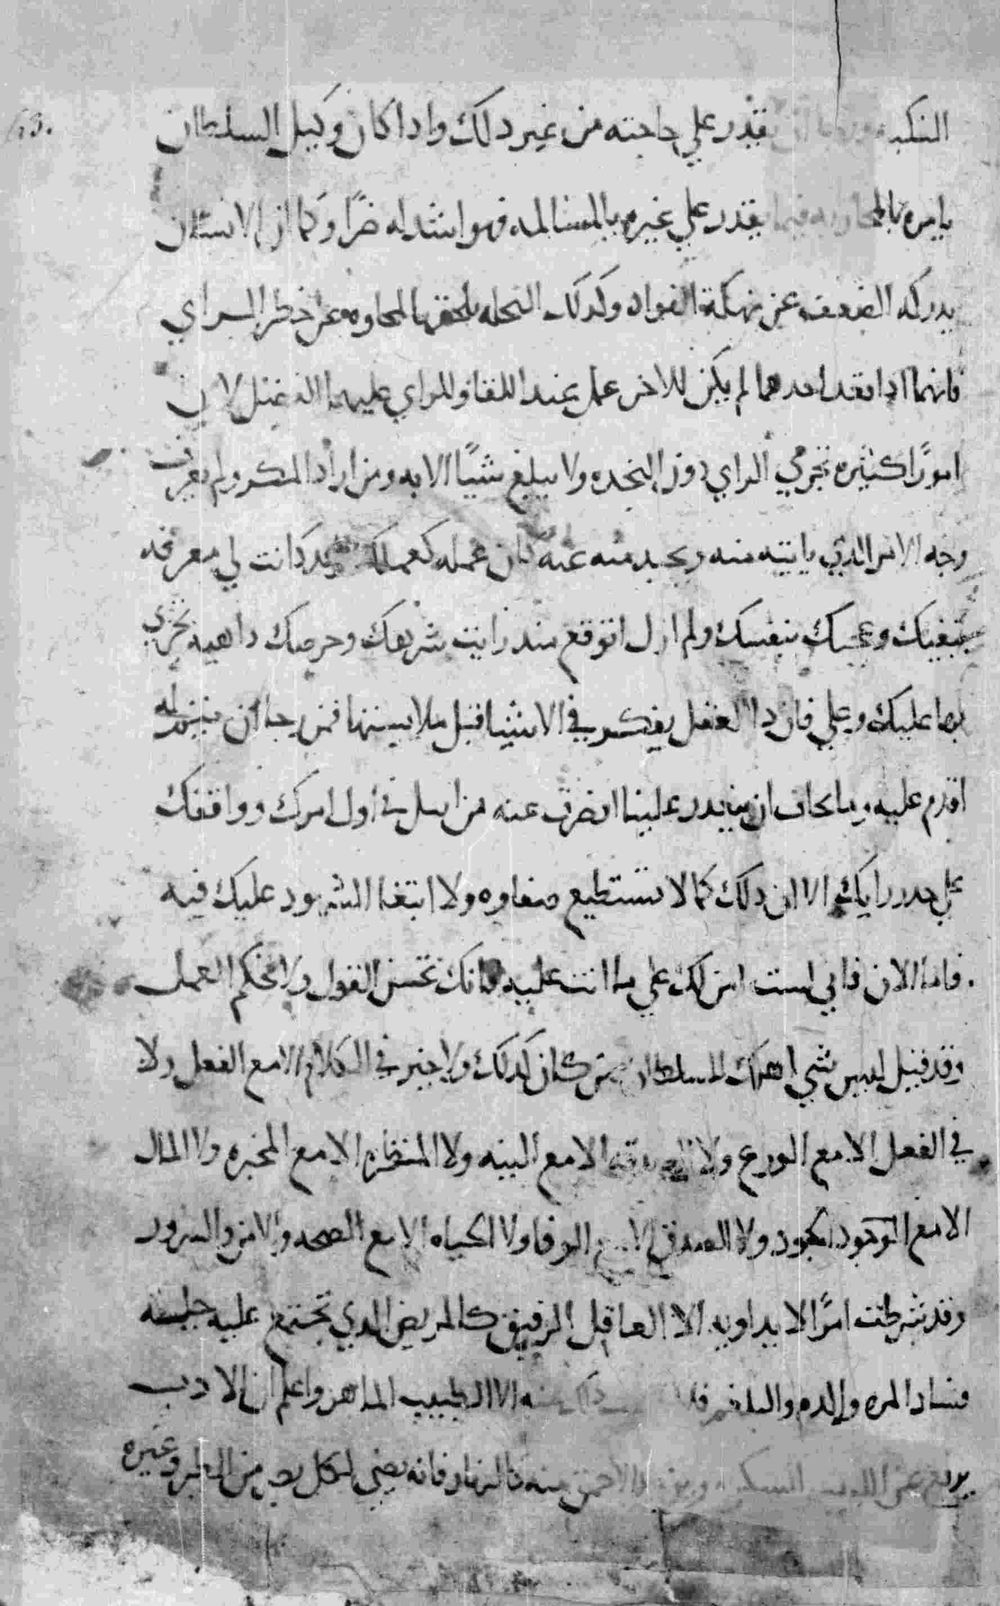 النكبه يقدر علي حاجته من غير دلك وادا كان وكيل السلطان
يامره بالمحاربه فيما يقدر علي غيره بالمسالمه فهو اشد له ضرا وكما ان الانسان
يدركه الضعف عن نهكة الفواد وكدلك النجده يلحقها عن خطر الراي
فانهما ادا فقد احدهما لم يكن للاخر عمل عند اللقا وللراي عليهما الفضل لان
امورا كثيره تجري في الراي دون النجده ولا يبلغ شيا الا به ومن اراد المكر ولم يعرف
وجه الامر الدي ياتيه منه ويحيد منه عنه كان عمله كعملك وقد كانت لي معرفه
ببغيك وعجبك بنفسك ولم ازل اتوقع مند رايت شرهك وحرصك داهيه تجري
بها عليك وعلي فان دا العقل يفكر في الاشيا قبل ملابستها فمن رجا ان
اقدم عليه وما يخاف ان علينا انصرف عنه من اول امرك وواقفك
علي رايك الا ان دلك كما لا تستطيع ولا ابتغا الشهود عليك فيه
فاما الان فاني لست لك علي ما انت عليه فانك تحسن القول ولا تحكم العمل
وقد قيل ليس شي اهلك للسلطان ممن كان كدلك ولا خير في الكلام الا مع الفعل ولا
في الفعل الا مع الورع ولا الصدقه الا مع النيه ولا المنظر الا مع المخبره ولا المال
الا مع الجود ولا الصدق الا مع الوفا ولا الحياه الا مع الصحه والامن والسرور
وقد شرطت امرا لا يداويه الا العاقل الرفيق كالمريض الدي تجتمع عليه
فساد المره والدم والبلغم دلك عنه الا الطبيب الماهر واعلم ان الادب
يدفع عن اللبيب السكر الاحمق منه كالنهار فانه يضي لكل من الطير وغيره